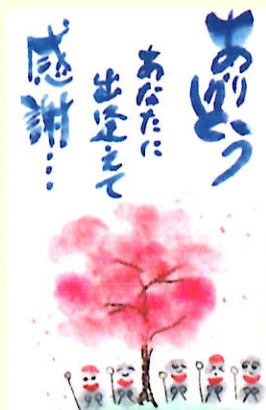 ありがとう
あなたに
出逢えて
感謝…